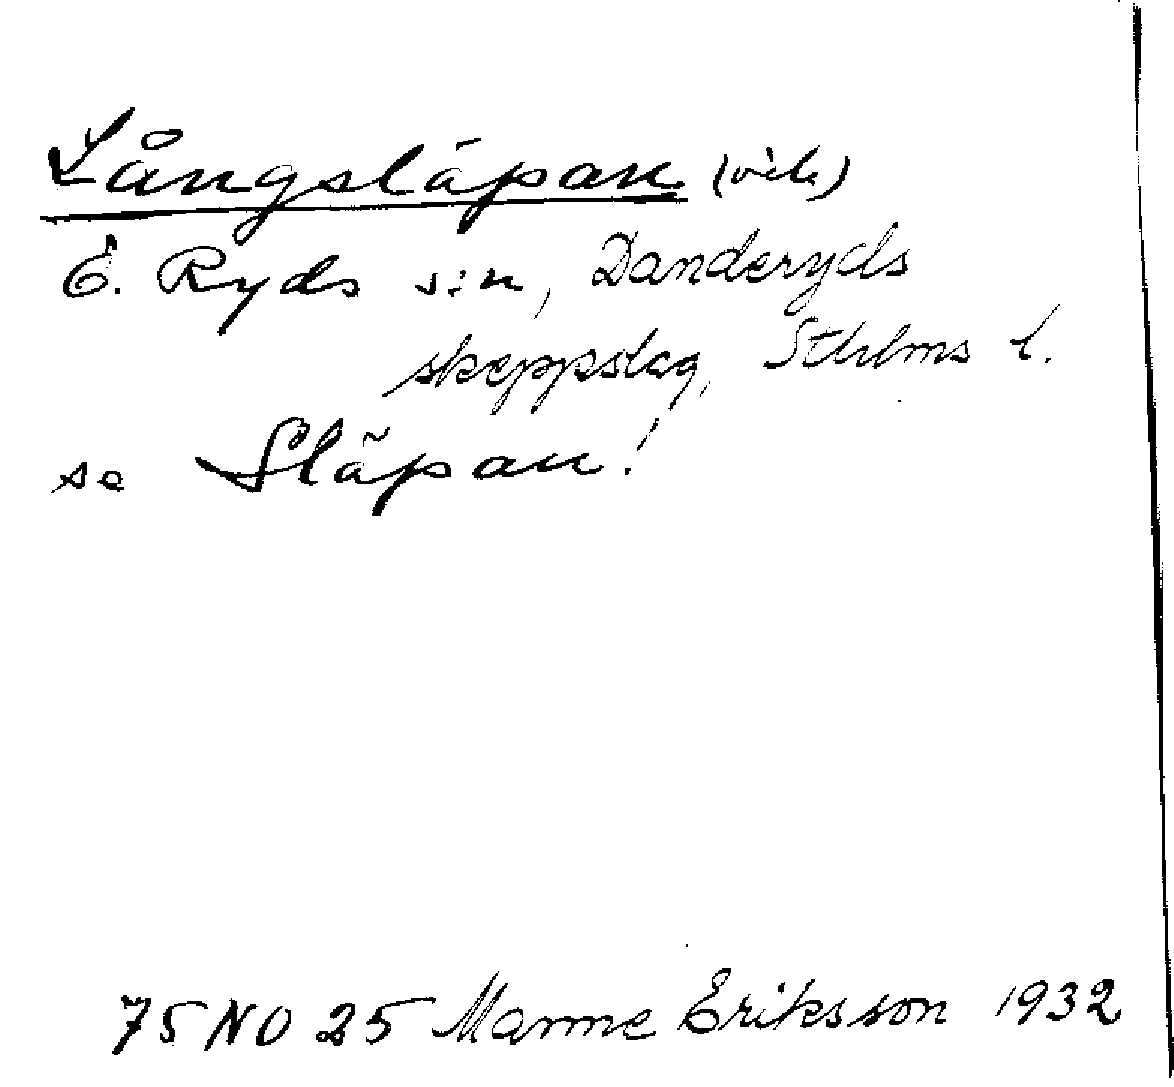 Långsläpan (vik)
Ö. Ryds s:n, Danderyds
skeppslag, Sthlms l.
se Släpan!
75 NO 25 Manne Eriksson 1932